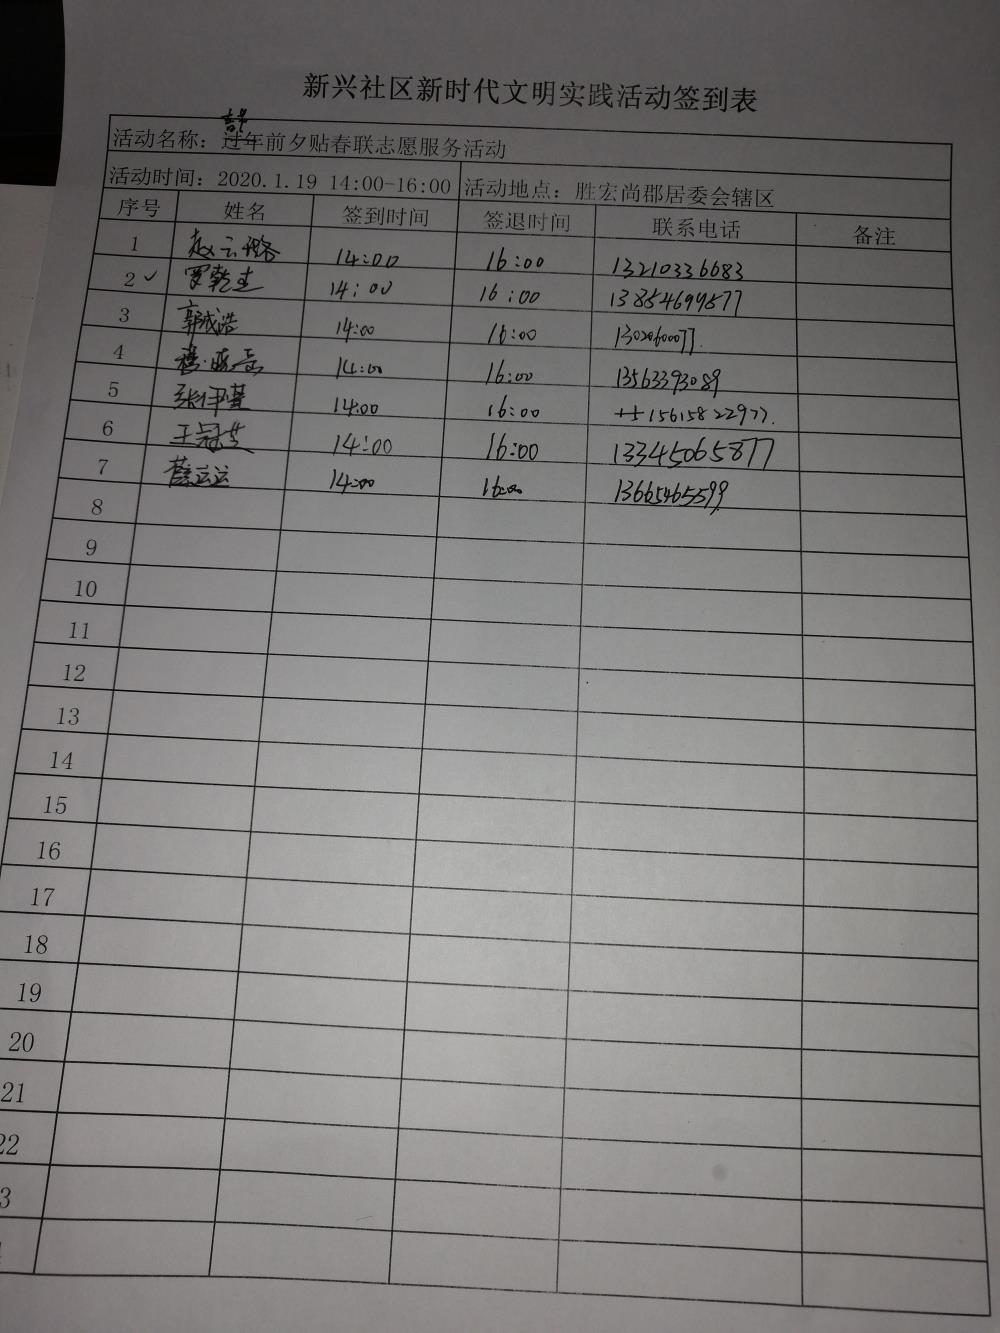 新兴社区新时代文明实践活动签到表
活动名称：过年前夕贴春联志愿服务活动
活动时间：2020.1.19 14:00-16:00 活动地点：胜宏尚郡居委会辖区
序号 姓名 签到时间 签退时间 联系电话 备注
1 赵云璐 14:00 16:00 13210336683
2 ✓ 贾乾圭 14:00 16:00 13854699577
3 郭成浩 14:00 16:00
4 14:00 16:00 13563393089
5 张伊萱 14:00 16:00 15615822977.
6 王冠芝 14:00 16:00 13345065877
7 蔡运运 14:00 16:00 13665465599
8
9
10
11
12
13
14
15
16
17
18
19
20
21
22
3